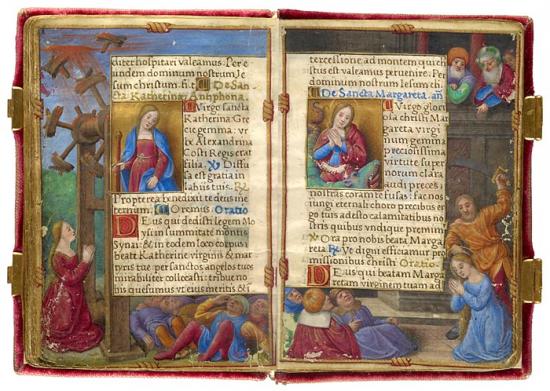 citer hospitari valeamus. Per e
undem dominum nostrum Je
sum christum. fi De San
cta Katherina Anphona.
Virgo sancta
Katherina Gre
cie gemma: vr
be Alexandrina
Costi Regis erat
filia. Diffu
sa est gratia in
labiis tuis.
Propterea benedixit te deus ine
ternum. Oremus. Oratio
Deus qui dedisti legem Mo
ysi in summitate montis
Synai: & in eodem loco corpus
beate Katherine virginis & mar
tyris tue per sanctos angelos tuos
mirabiliter collocasti: tribue no
bis quesumus vt eius meritis & i
tercessione. ad montem qui christus
est valeamus peruenire. Per
dominum nostrum Jesum ch
De Sancta Margareta. añ
Virgo glorio
sa christi Mar
gareta virgi
num gemma
preciosissima
virtute super
norum clara
audi preces
nostras coram te fusas: fac nos
iungi eternali choro precibus er
go tuis adesto calamitatibus no
stris quibus vndique premimur
Ora pro nobis beata Marga
reta. Vt digni efficiamur pro
missionibus christi. Oratio.
Deus qui beatam Marga
retam virginem tuam ad